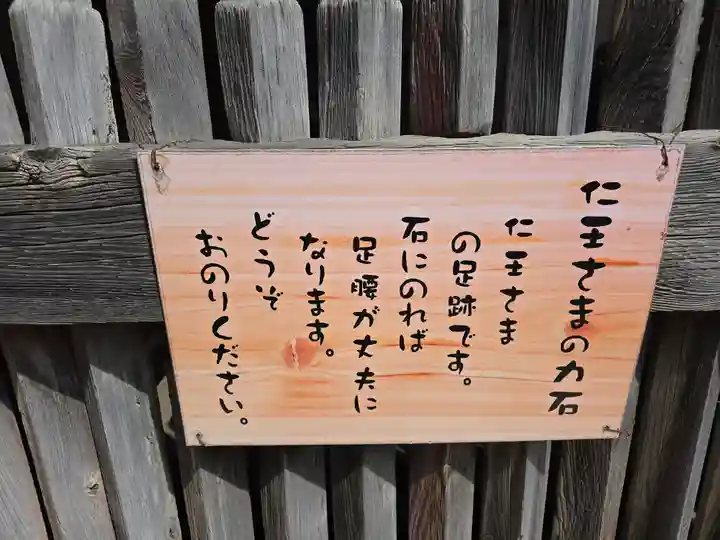 仁王さまの力石
仁王さま
の足跡です。
石にのれば
足腰が丈夫に
なります。
どうぞ
おのりください。